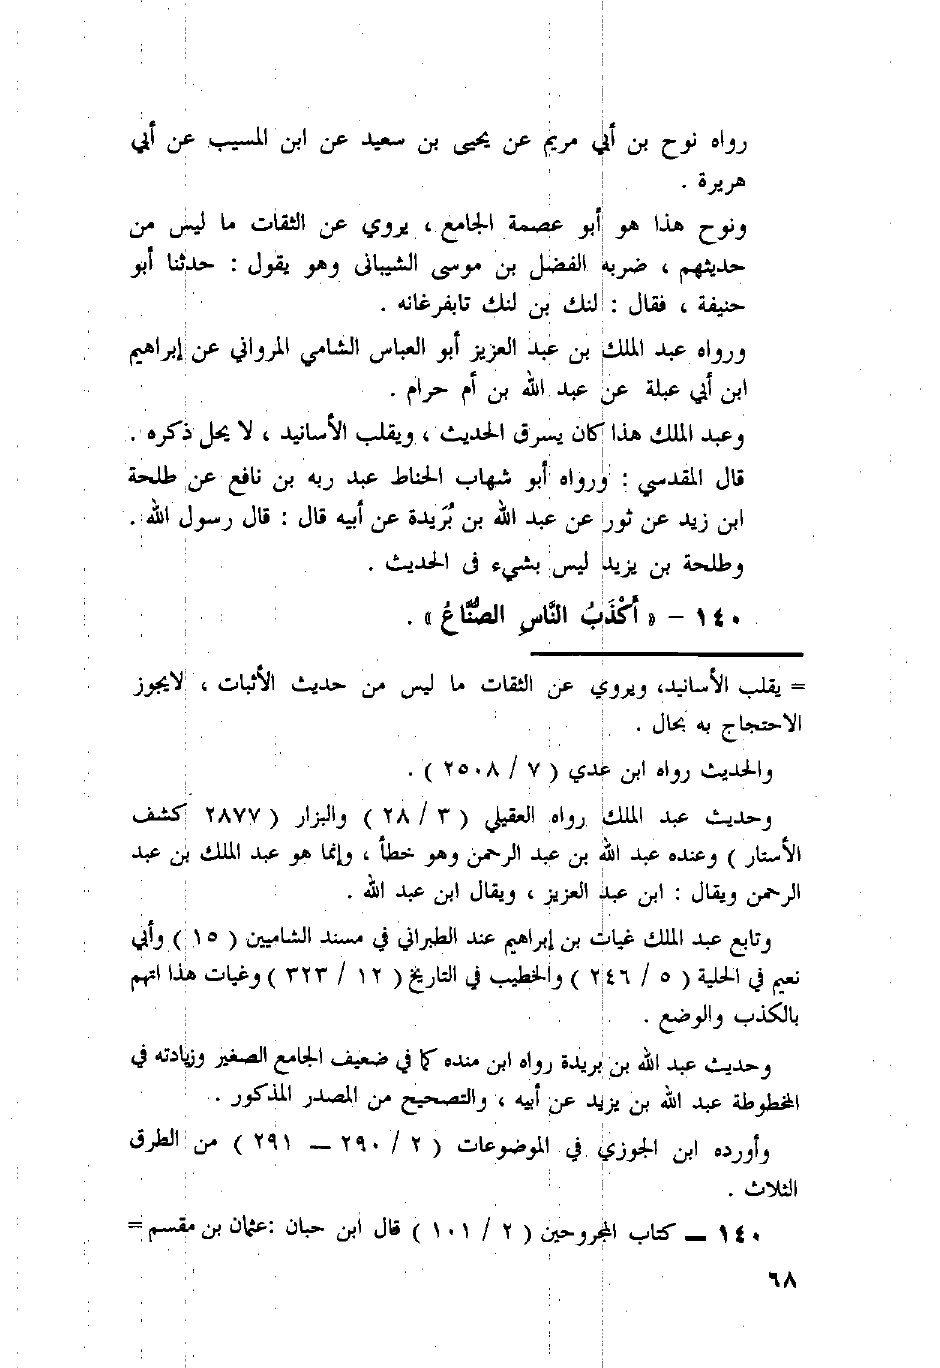 رواه نوح بن أبي مريم عن يحيى بن سعيد عن ابن المسيب عن أبي
هريرة .
ونوح هذا هو أبو عصمة الجامع ، يروي عن الثقات ما ليس من
حديثهم ، ضربه الفضل بن موسى الشيبانى وهو يقول : حدثنا أبو
حنيفة ، فقال : لنك بن لنك تابفرغانه .
ورواه عبد الملك بن عبد العزيز أبو العباس الشامي المرواني عن إبراهيم
ابن أبي عبلة عن عبد الله بن أم حرام .
وعبد الملك هذا كان يسرق الحديث ، ويقلب الأسانيد ، لا يحل ذكره .
قال المقدسي : ورواه أبو شهاب الحناط عبد ربه بن نافع عن طلحة
ابن زيد عن ثور عن عبد الله بن بُرَيدة عن أبيه قال : قال رسول الله .
وطلحة بن يزيد ليس بشيء فى الحديث .
١٤٠ – « أَكْذَبُ النَّاسِ الصُّنَّاعُ » .
= يقلب الأسانيد، ويروي عن الثقات ما ليس من حديث الأثبات ، لايجوز
الاحتجاج به بحال .
والحديث رواه ابن عدي ( ٧ / ٢٥٠٨ ) .
وحديث عبد الملك رواه العقيلي ( ٣ / ٢٨ ) والبزار ( ٢٨٧٧ كشف
الأستار ) وعنده عبد الله بن عبد الرحمن وهو خطأ ، وإنما هو عبد الملك بن عبد
الرحمن ويقال : ابن عبد العزيز ، ويقال ابن عبد الله .
وتابع عبد الملك غياث بن إبراهيم عند الطبراني في مسند الشاميين ( ١٥ ) وأبي
نعيم في الحلية ( ٥ / ٢٤٦ ) والخطيب في التاريخ ( ١٢ / ٣٢٣ ) وغياث هذا اتهم
بالكذب والوضع .
وحديث عبد الله بن بريدة رواه ابن منده كما في ضعيف الجامع الصغير وزيادته في
المخطوطة عبد الله بن يزيد عن أبيه ، والتصحيح من المصدر المذكور .
وأورده ابن الجوزي في الموضوعات ( ٢ / ٢٩٠ – ٢٩١ ) من الطرق
الثلاث .
١٤٠ – كتاب المجروحين ( ٢ / ١٠١ ) قال ابن حبان :عثمان بن مقسم =
٦٨